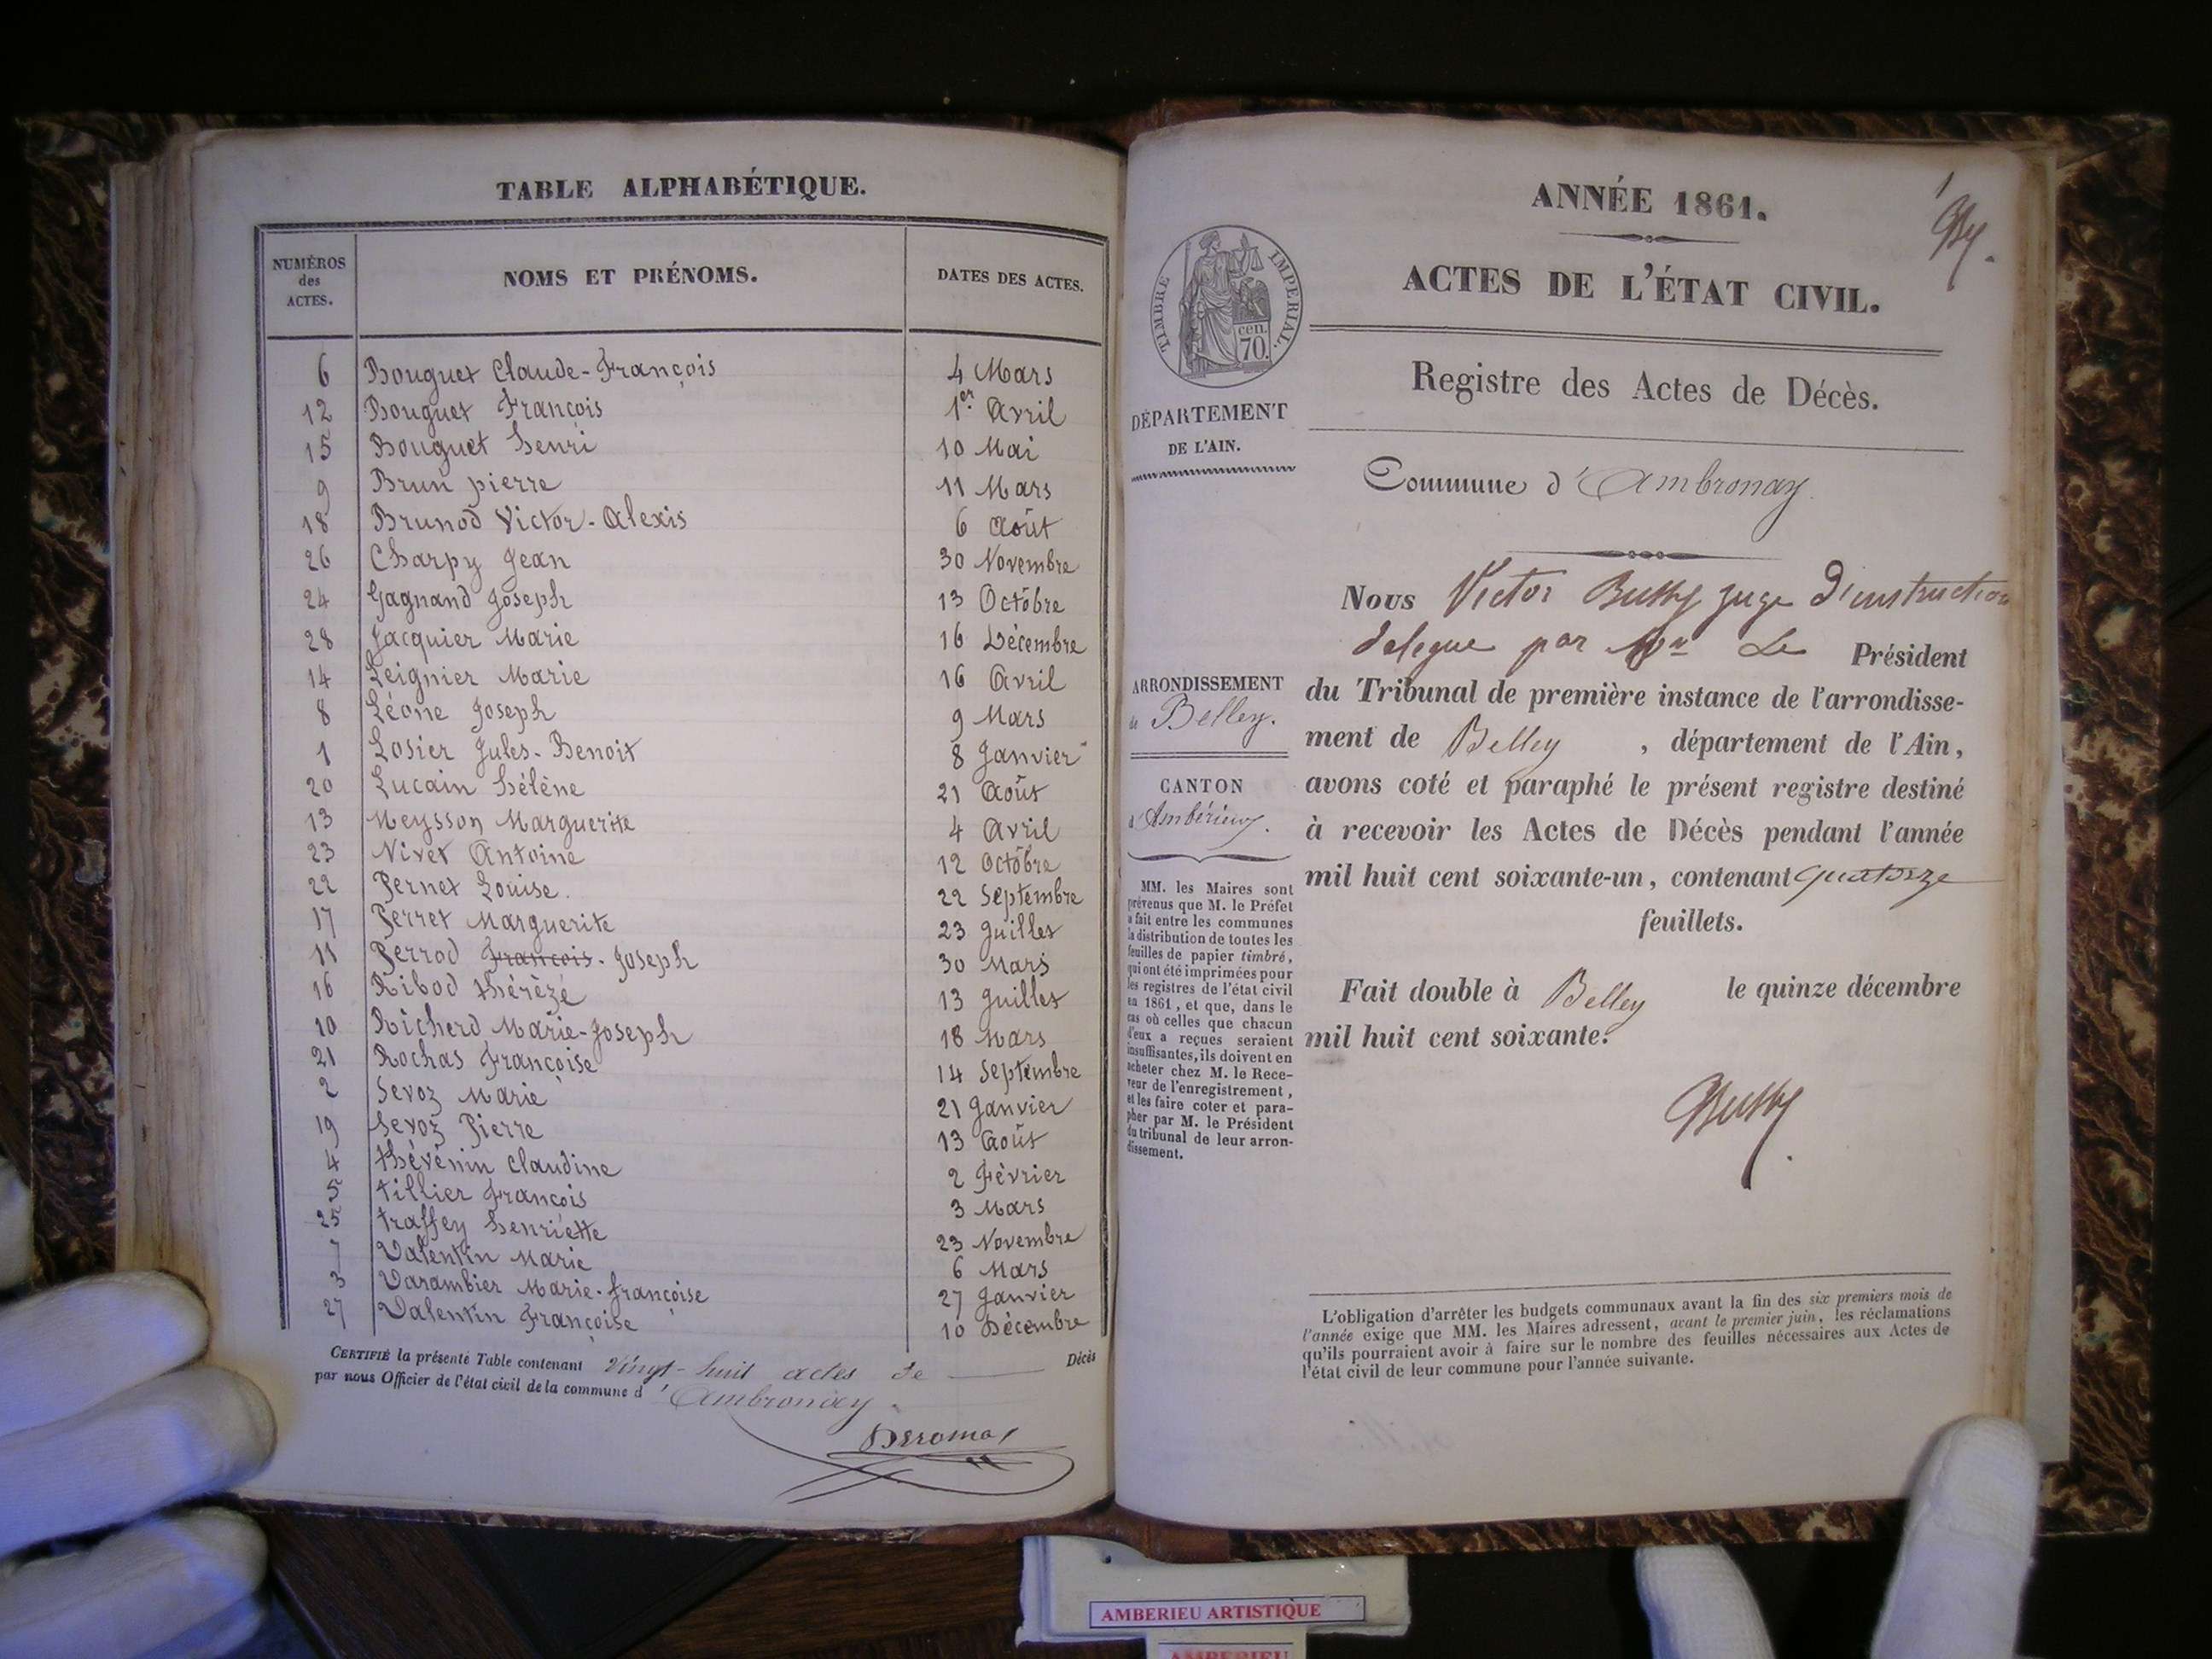 TABLE ALPHABÉTIQUE.
NUMÉROS des ACTES. NOMS ET PRÉNOMS. DATES DES ACTES.
6 Bouguet Claude-François 4 Mars
12 Bouguet François 1er Avril
15 Bouguet henri 10 Mai
9 Brun pierre 11 Mars
18 Brunod Victor-Alexis 6 Août
26 Charpy Jean 30 Novembre
24 Gagnand Joseph 13 Octobre
28 Jacquier Marie 16 Décembre
14 Leignier Marie 16 Avril
8 Léone Joseph 9 Mars
1 Losier Jules-Benoit 8 Janvier
20 Lucain hélène 21 Août
13 Meysson Marguerite 4 Avril
23 Nivet Antoine 12 Octobre
22 Pernet Louise. 22 Septembre
17 Perret Marguerite 23 Juillet
11 Perrod François-Joseph 30 Mars
16 Ribod thérèze 13 Juillet
10 Richerd Marie-Joseph 18 Mars
21 Rochas Françoise 14 Septembre
2 Sevoz Marie 21 Janvier
19 Sevoz Pierre 13 Août
4 thévenin Claudine 2 Février
5 tillier François 3 Mars
25 traffey henriette 23 Novembre
7 Valentin Marie 6 Mars
3 Varambier Marie-françoise 27 Janvier
27 Valentin Françoise 10 Décembre
CERTIFIÉ la présente Table contenant Vingt-huit actes de Décès
par nous Officier de l'état civil de la commune d'Ambronay
ANNÉE 1861.
1
ACTES DE L'ÉTAT CIVIL.
TIMBRE IMPÉRIAL.
cen.
70.
Registre des Actes de Décès.
DÉPARTEMENT
DE L'AIN.
Commune d'Ambronay.
Nous Victor Bussy juge d'instruction
delegue par Mr Le Président
du Tribunal de première instance de l'arrondisse-
ment de Belley, département de l'Ain,
avons coté et paraphé le présent registre destiné
à recevoir les Actes de Décès pendant l'année
mil huit cent soixante-un, contenant quatorze
feuillets.
Fait double à Belley le quinze décembre
mil huit cent soixante.
Bussy
ARRONDISSEMENT
de Belley.
CANTON
d'Ambérieux.
MM. les Maires sont
prévenus que M. le Préfet
a fait entre les communes
la distribution de toutes les
feuilles de papier timbré,
qui ont été imprimées pour
les registres de l'état civil
en 1861, et que, dans le
cas où celles que chacun
d'eux a reçues seraient
insuffisantes, ils doivent en
acheter chez M. le Rece-
veur de l'enregistrement,
et les faire coter et para-
pher par M. le Président
du tribunal de leur arron-
dissement.
L'obligation d'arrêter les budgets communaux avant la fin des six premiers mois de
l'année exige que MM. les Maires adressent, avant le premier juin, les réclamations
qu'ils pourraient avoir à faire sur le nombre des feuilles nécessaires aux Actes de
l'état civil de leur commune pour l'année suivante.
AMBERIEU ARTISTIQUE
AMBERIEU